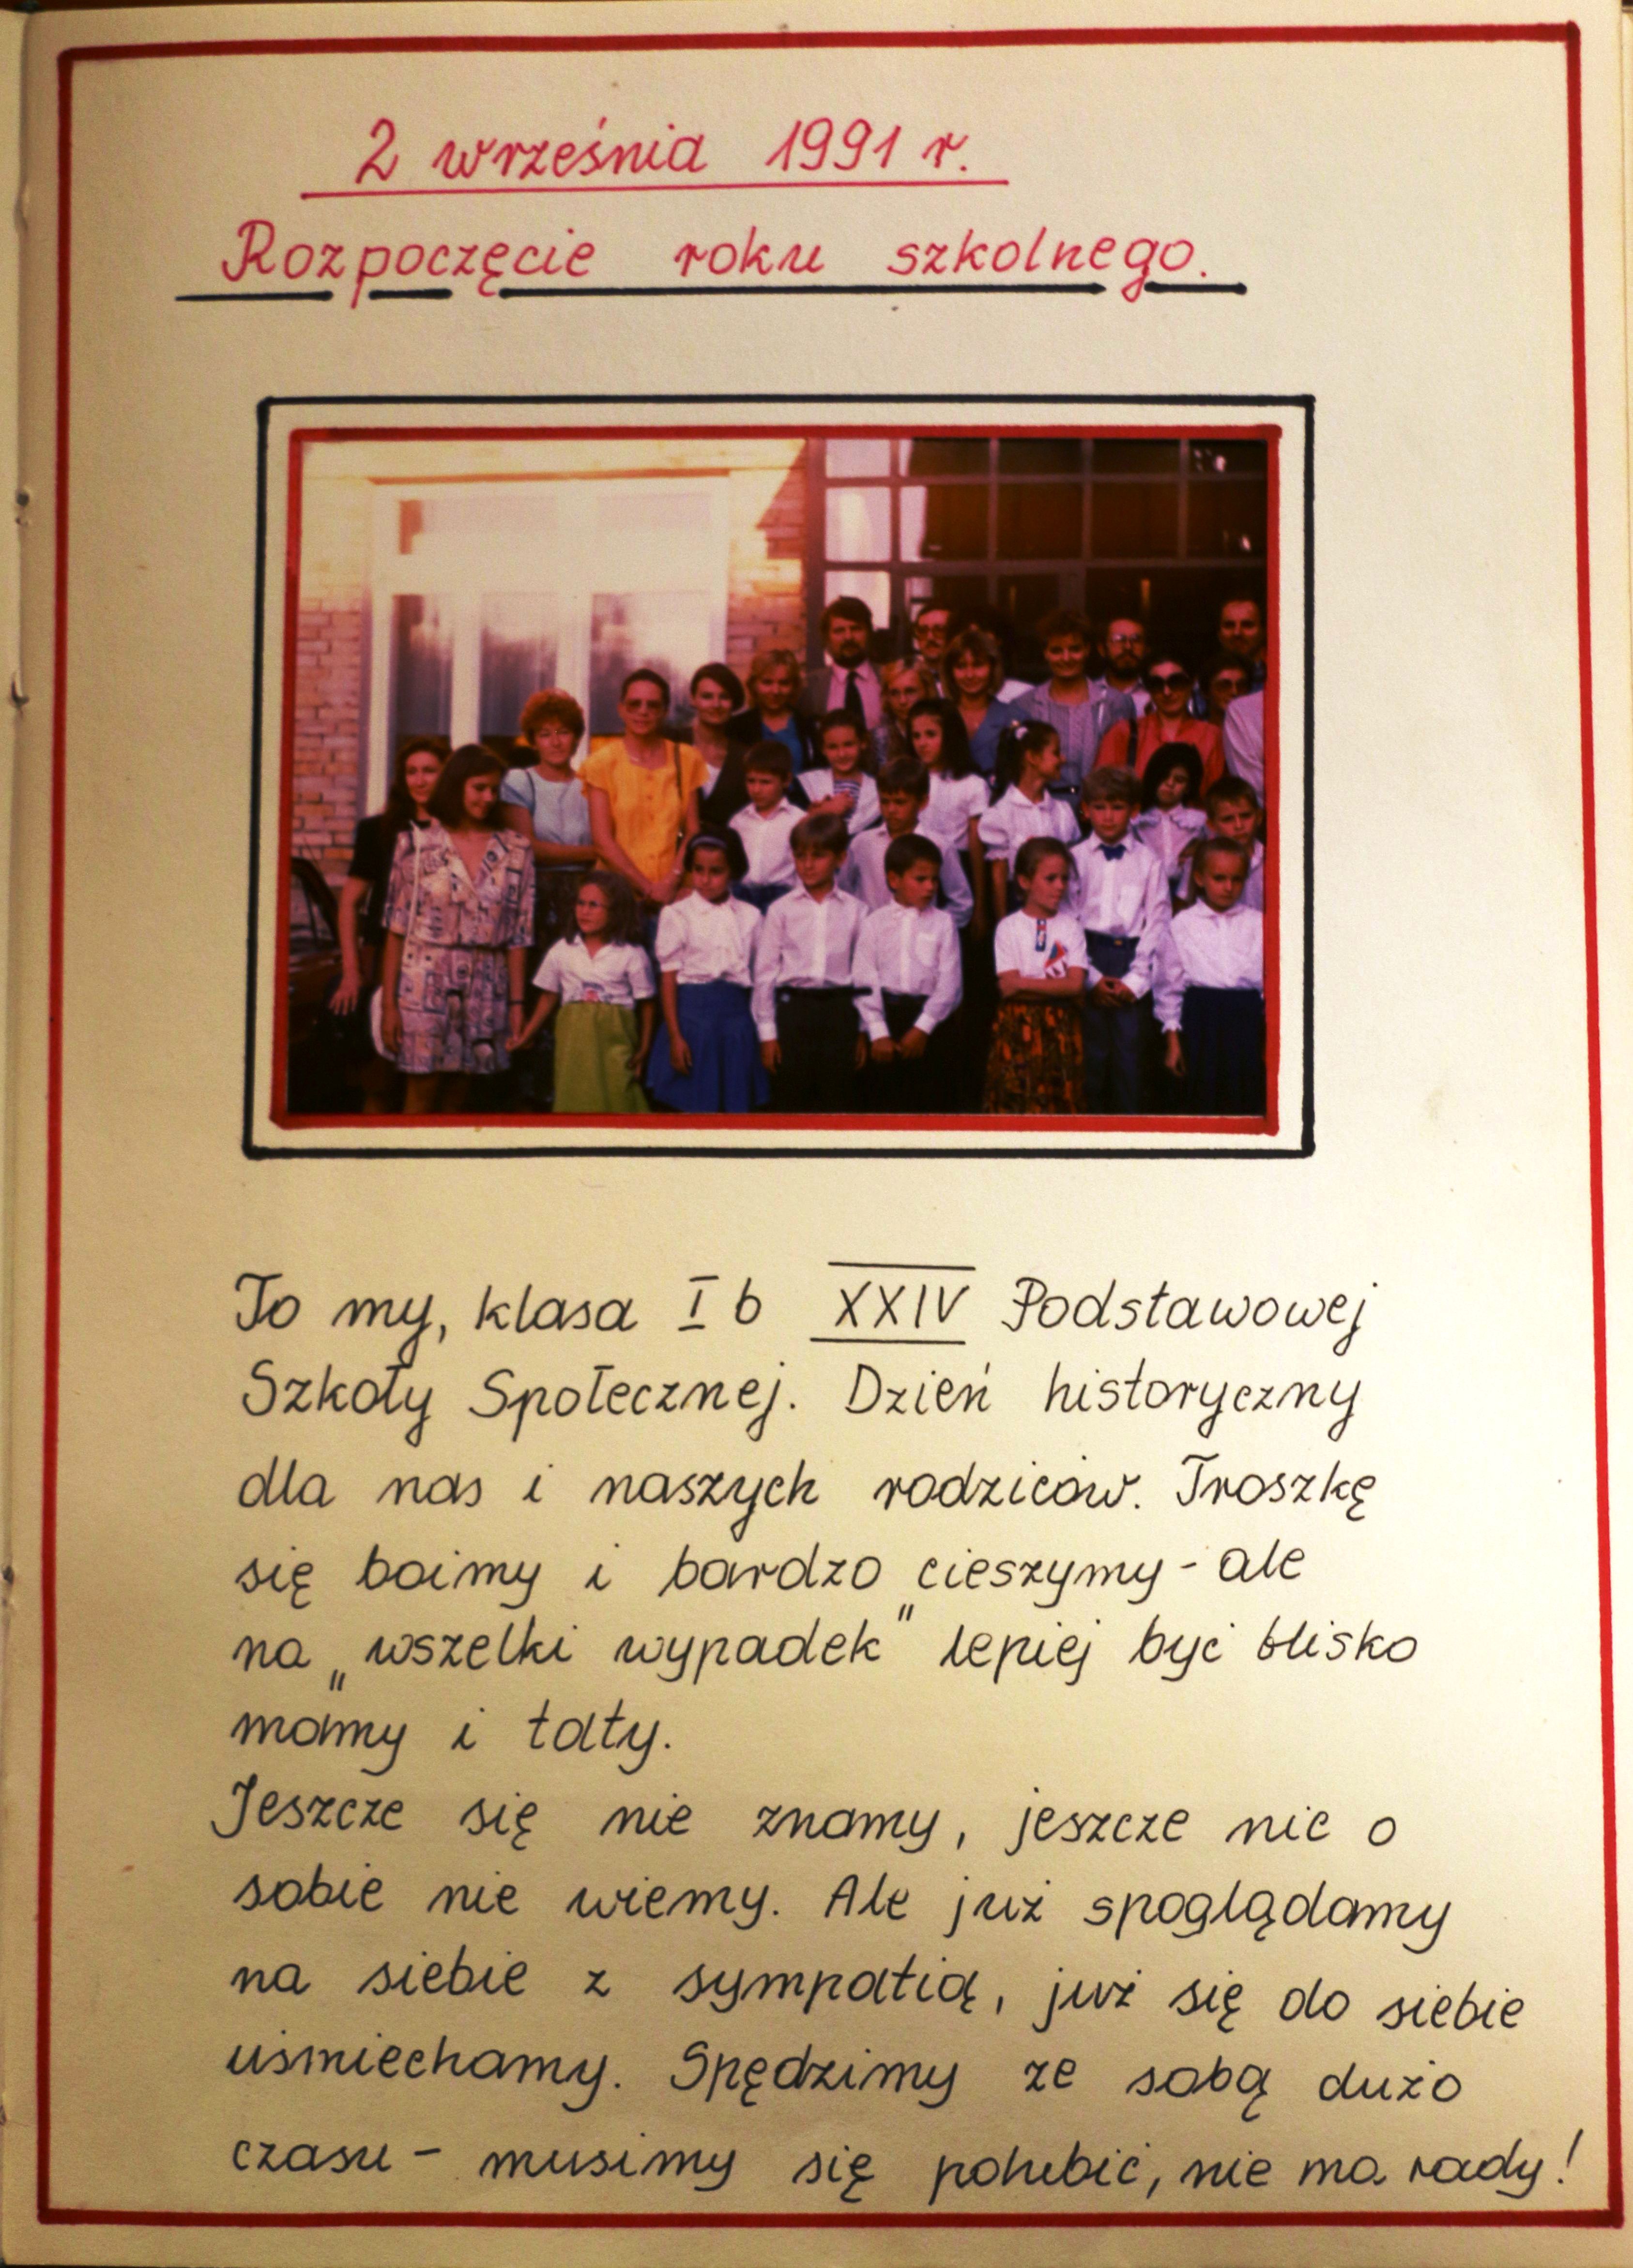 2 września 1991 r.
Rozpoczęcie roku szkolnego.
To my, klasa I b XXIV Podstawowej
Szkoły Społecznej. Dzień historyczny
dla nas i naszych rodziców. Troszkę
się boimy i bardzo cieszymy - ale
na „wszelki wypadek" lepiej być blisko
mamy i taty.
Jeszcze się nie znamy, jeszcze nic o
sobie nie wiemy. Ale już spoglądamy
na siebie z sympatią, już się do siebie
uśmiechamy. Spędzimy ze sobą dużo
czasu - musimy się polubić, nie ma rady!